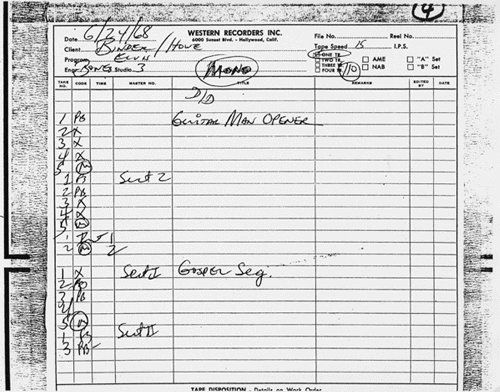 4
Date 6/24/68
WESTERN RECORDERS INC.
6000 Sunset Blvd. - Hollywood, Calif.
File No. Reel No.
Client BINDER/HOWE
Tape Speed 15 I.P.S.
Program ELVIS
MONO
ONE TR. AME "A" Set
TWO TR. NAB "B" Set
THREE
FOUR
Engr. BONES Studio 3
TAKE NO. CODE TIME MASTER NO. TITLE REMARKS EDITED BY DATE
D/D
1 PB GUITAR MAN OPENER
2 X
3 X
4 X
5 M
1 Sect 2
2 PB
3 X
4 X
5 M
1
2 M 2
1 X Sect I GOSPEL Seg.
2
3 PB
4
5
Sect II
3 PB
TAPE DISPOSITION - Details on Work Order